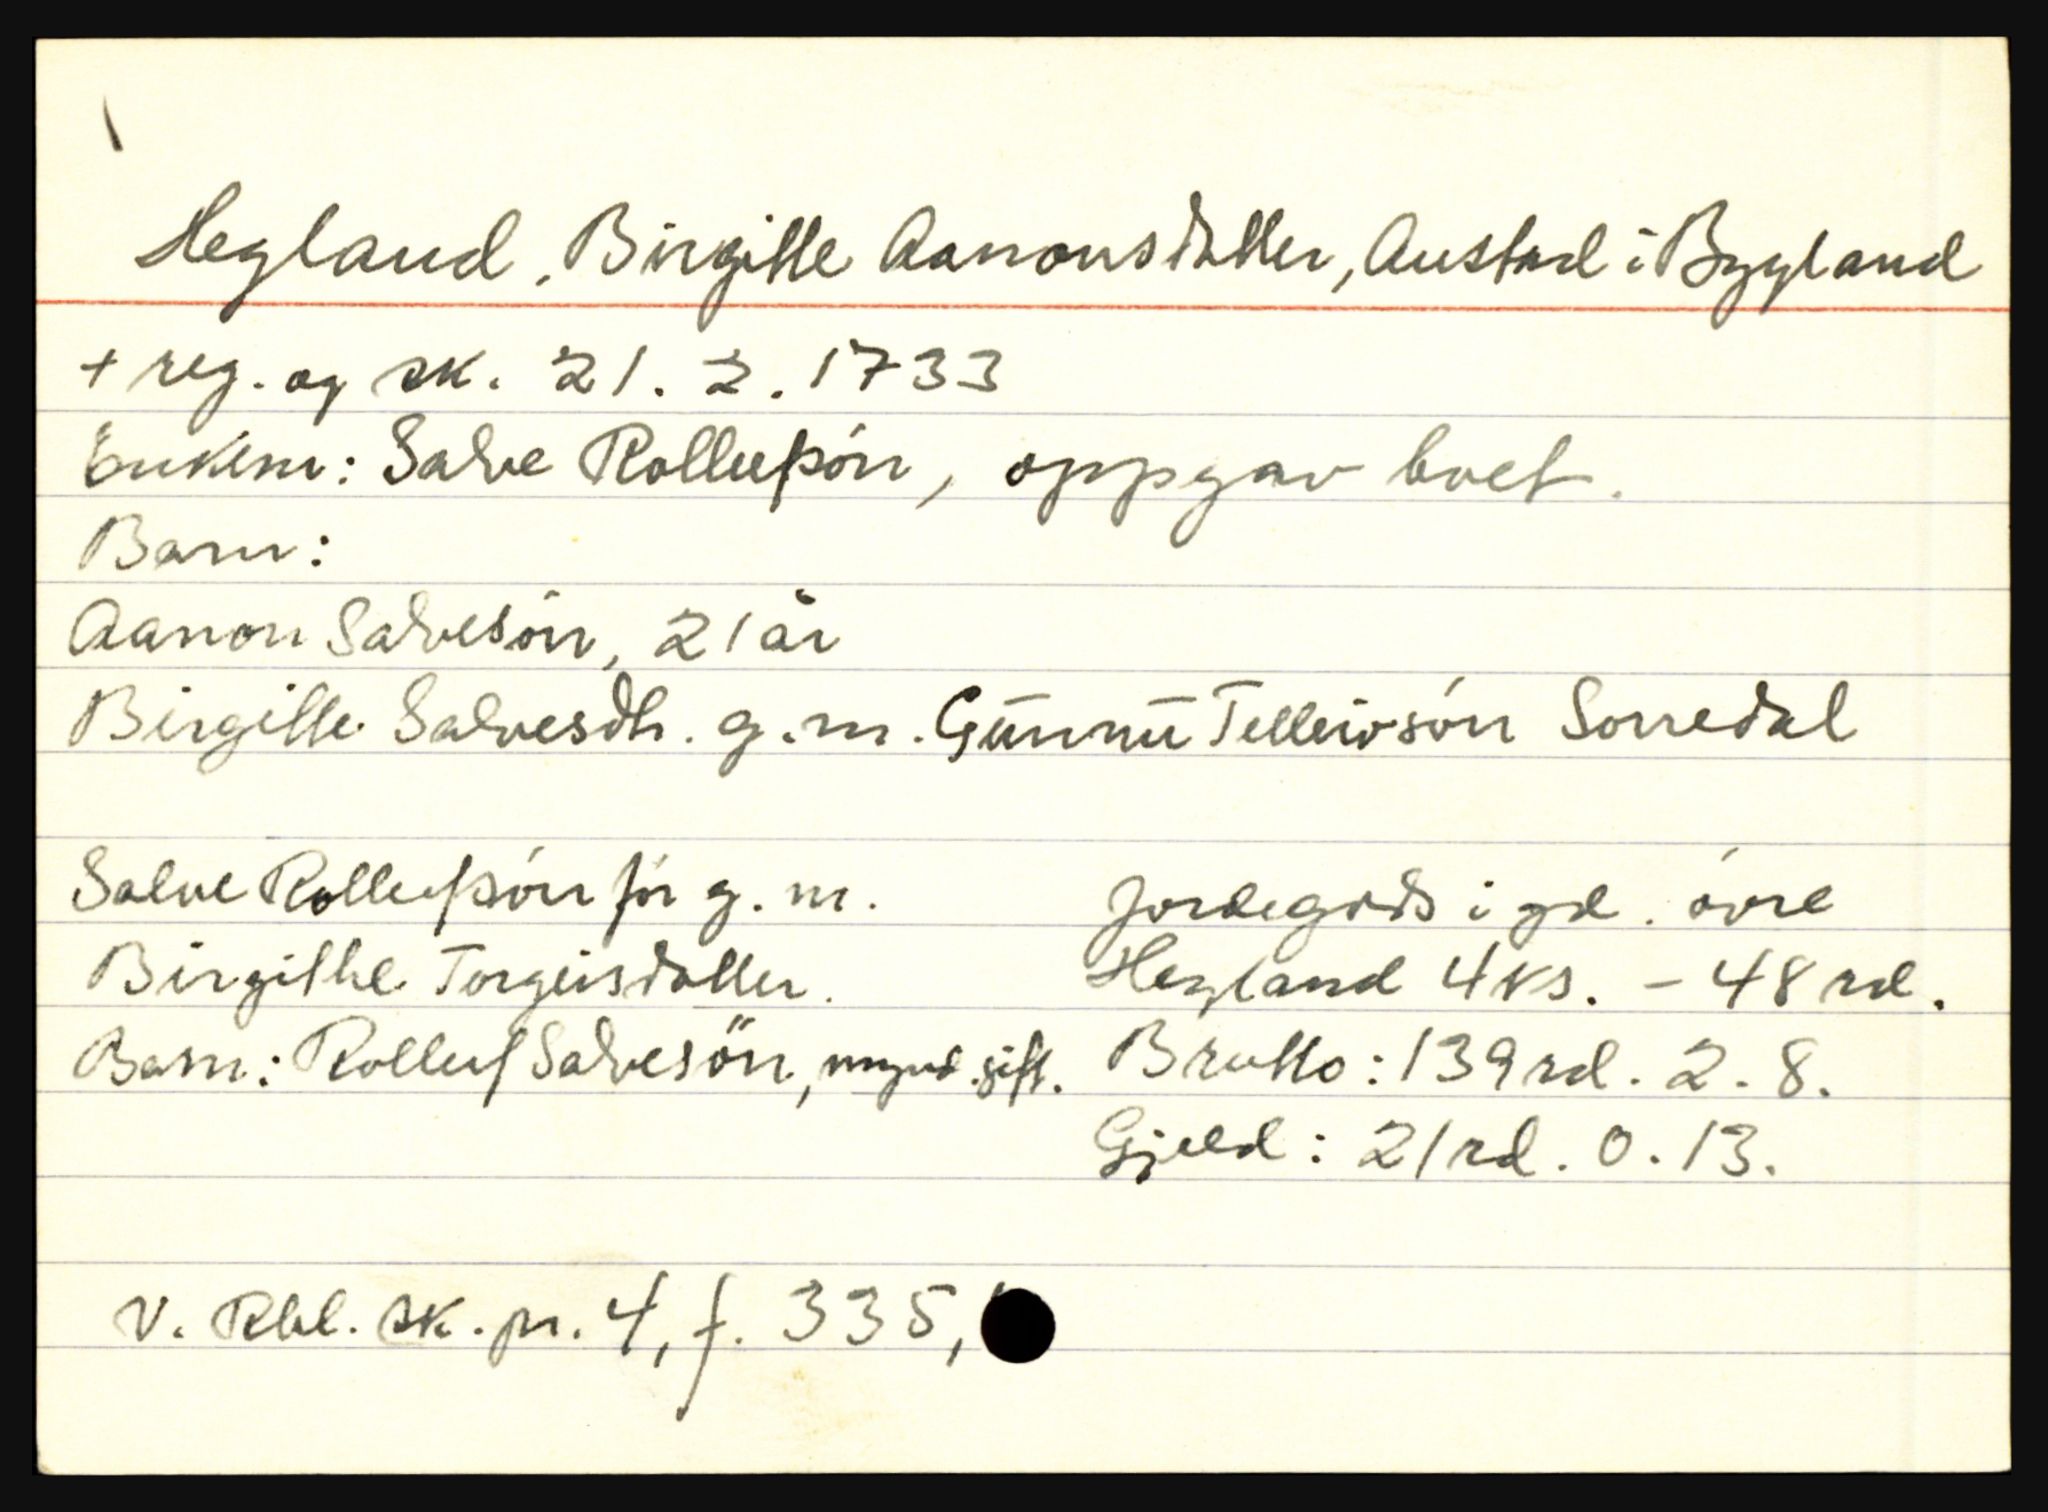 Hegland, Birgitte Aanonsdatter, Austad i Bygland
+ reg. og sk. 21. 2. 1733
Enkem: Salve Rollefsón, oppgav boet.
Barn:
Aanon Salvesón, 21 år
Birgitte Salvesdtr. g. m. Gunnu Tellevsón Sorredal
Salve Rollefsón før g. m.
Birgithe Torgeisdatter.
Barn: Rollef Salvesön, mynd. gift.
Jordegods i gd. óvre
Hegland 4 ks. - 48 rd.
Brutto: 139 rd. 2. 8.
Gjeld: 21 rd. 0. 13.
V. Rbl. sk. pr. 4, f. 335,